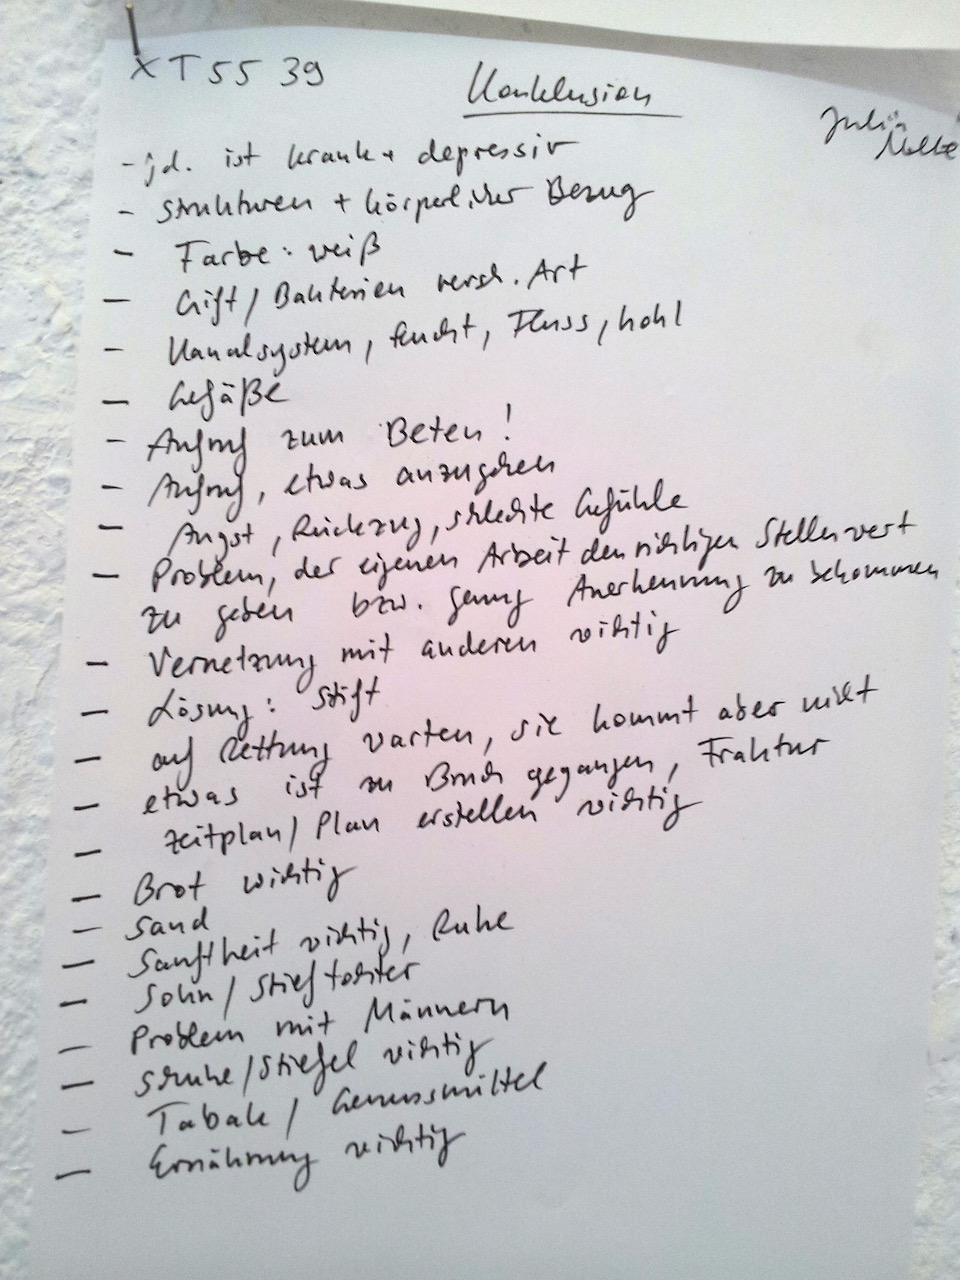 XT5539
Konklusion
Julia
Nolte
- jd. ist krank + depressiv
- Strukturen + körperlicher Bezug
- Farbe: weiß
- Gift / Bakterien versch. Art
- Kanalsystem, feucht, Fluss, hohl
- Gefäße
- Aufruf zum Beten!
- Aufruf, etwas anzugehen
- Angst, Rückzug, schlechte Gefühle
- Problem, der eigenen Arbeit den richtigen Stellenwert
zu geben bzw. genug Anerkennung zu bekommen
- Vernetzung mit anderen wichtig
- Lösung: Stift
- auf Rettung warten, sie kommt aber nicht
- etwas ist zu Bruch gegangen, Fraktur
- Zeitplan / Plan erstellen wichtig
- Brot wichtig
- Sand
- Sanftheit wichtig, Ruhe
- Sohn / Stieftochter
- Problem mit Männern
- Schuhe / Stiefel wichtig
- Tabak / Genussmittel
- Ernährung wichtig